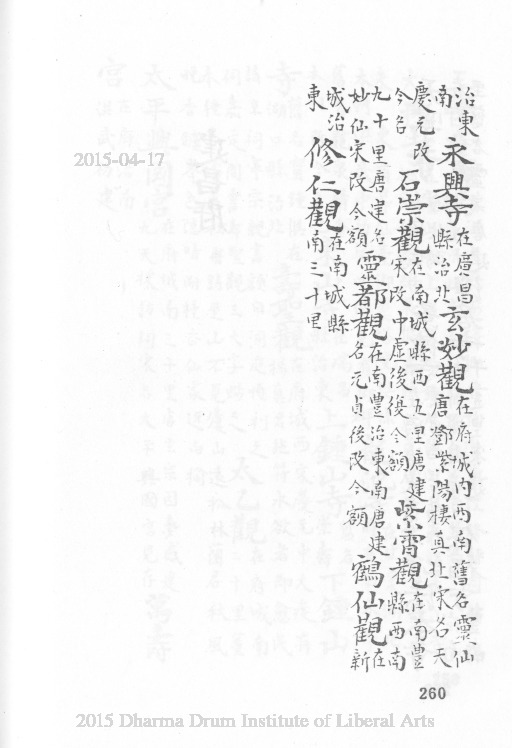 治東南永興寺在廣昌縣治北玄妙觀在府城内西南舊名靈仙唐鄧紫陽棲真此宋名天
慶元改今名石崇觀在南城縣西五里唐建宋改中虛後復今額紫霄觀在南豐縣西南
九十里唐建名妙仙宋改今額靈都觀在南豐治東南唐建名元貞後改今額鶴仙觀在新
城治東修仁觀在南城縣南三十里
2015-04-17
260
2015 Dharma Drum Institute of Liberal Arts